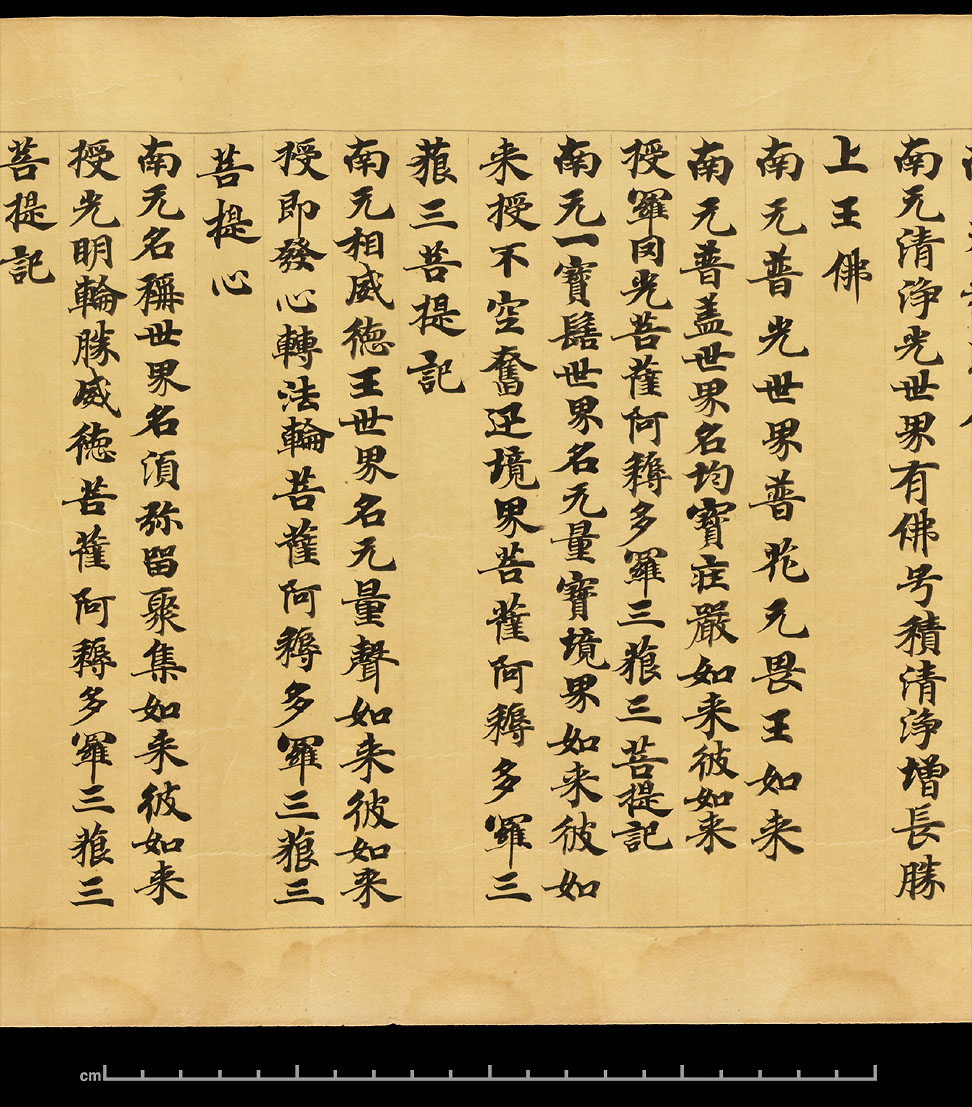 南无清淨光世界有佛号積清淨增長勝
上王佛
南无普光世界普花无畏王如来
南无普盖世界名均寶庄嚴如来彼如来
授羅囡光菩薩阿耨多羅三藐三菩提記
南无一寶髻世界名无量寶境界如来彼如
来授不空奮迅境界菩薩阿耨多羅三
藐三菩提記
南无相威德王世界名无量聲如来彼如来
授即發心轉法輪菩薩阿耨多羅三藐三
菩提心
南无名稱世界名須弥留聚集如来彼如来
授光明輪勝威德菩薩阿耨多羅三藐三
菩提記